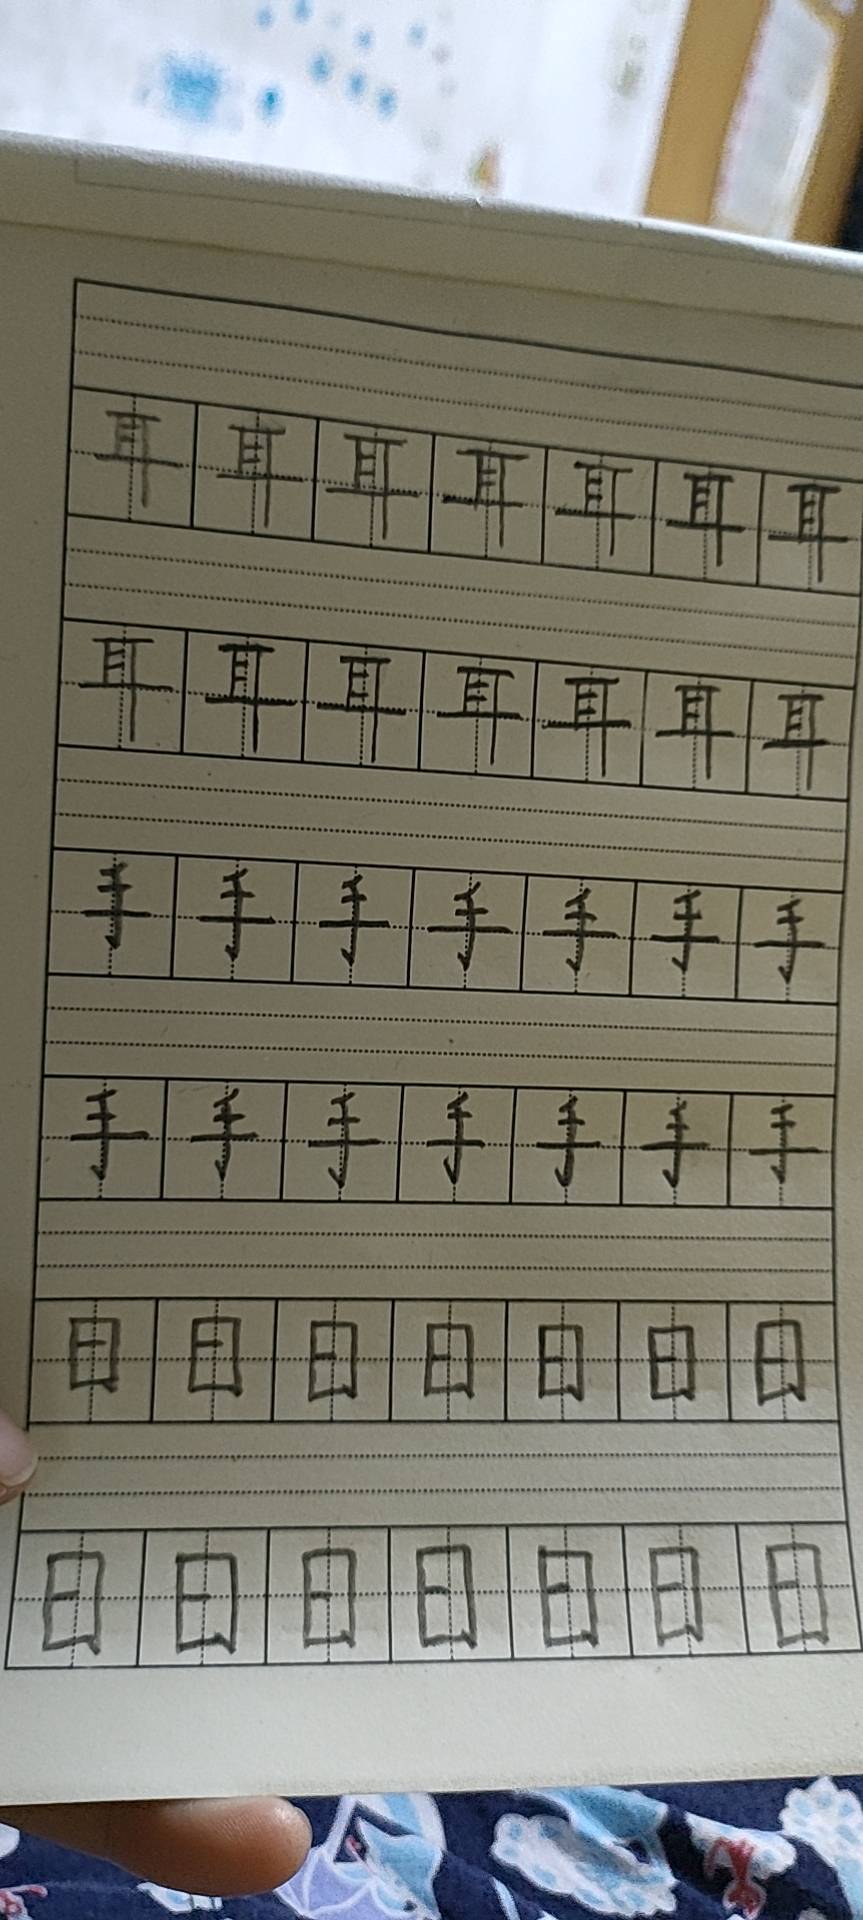 耳耳耳耳耳耳耳
耳耳耳耳耳耳耳
手手手手手手手
手手手手手手手
日日日日日日日
日日日日日日日